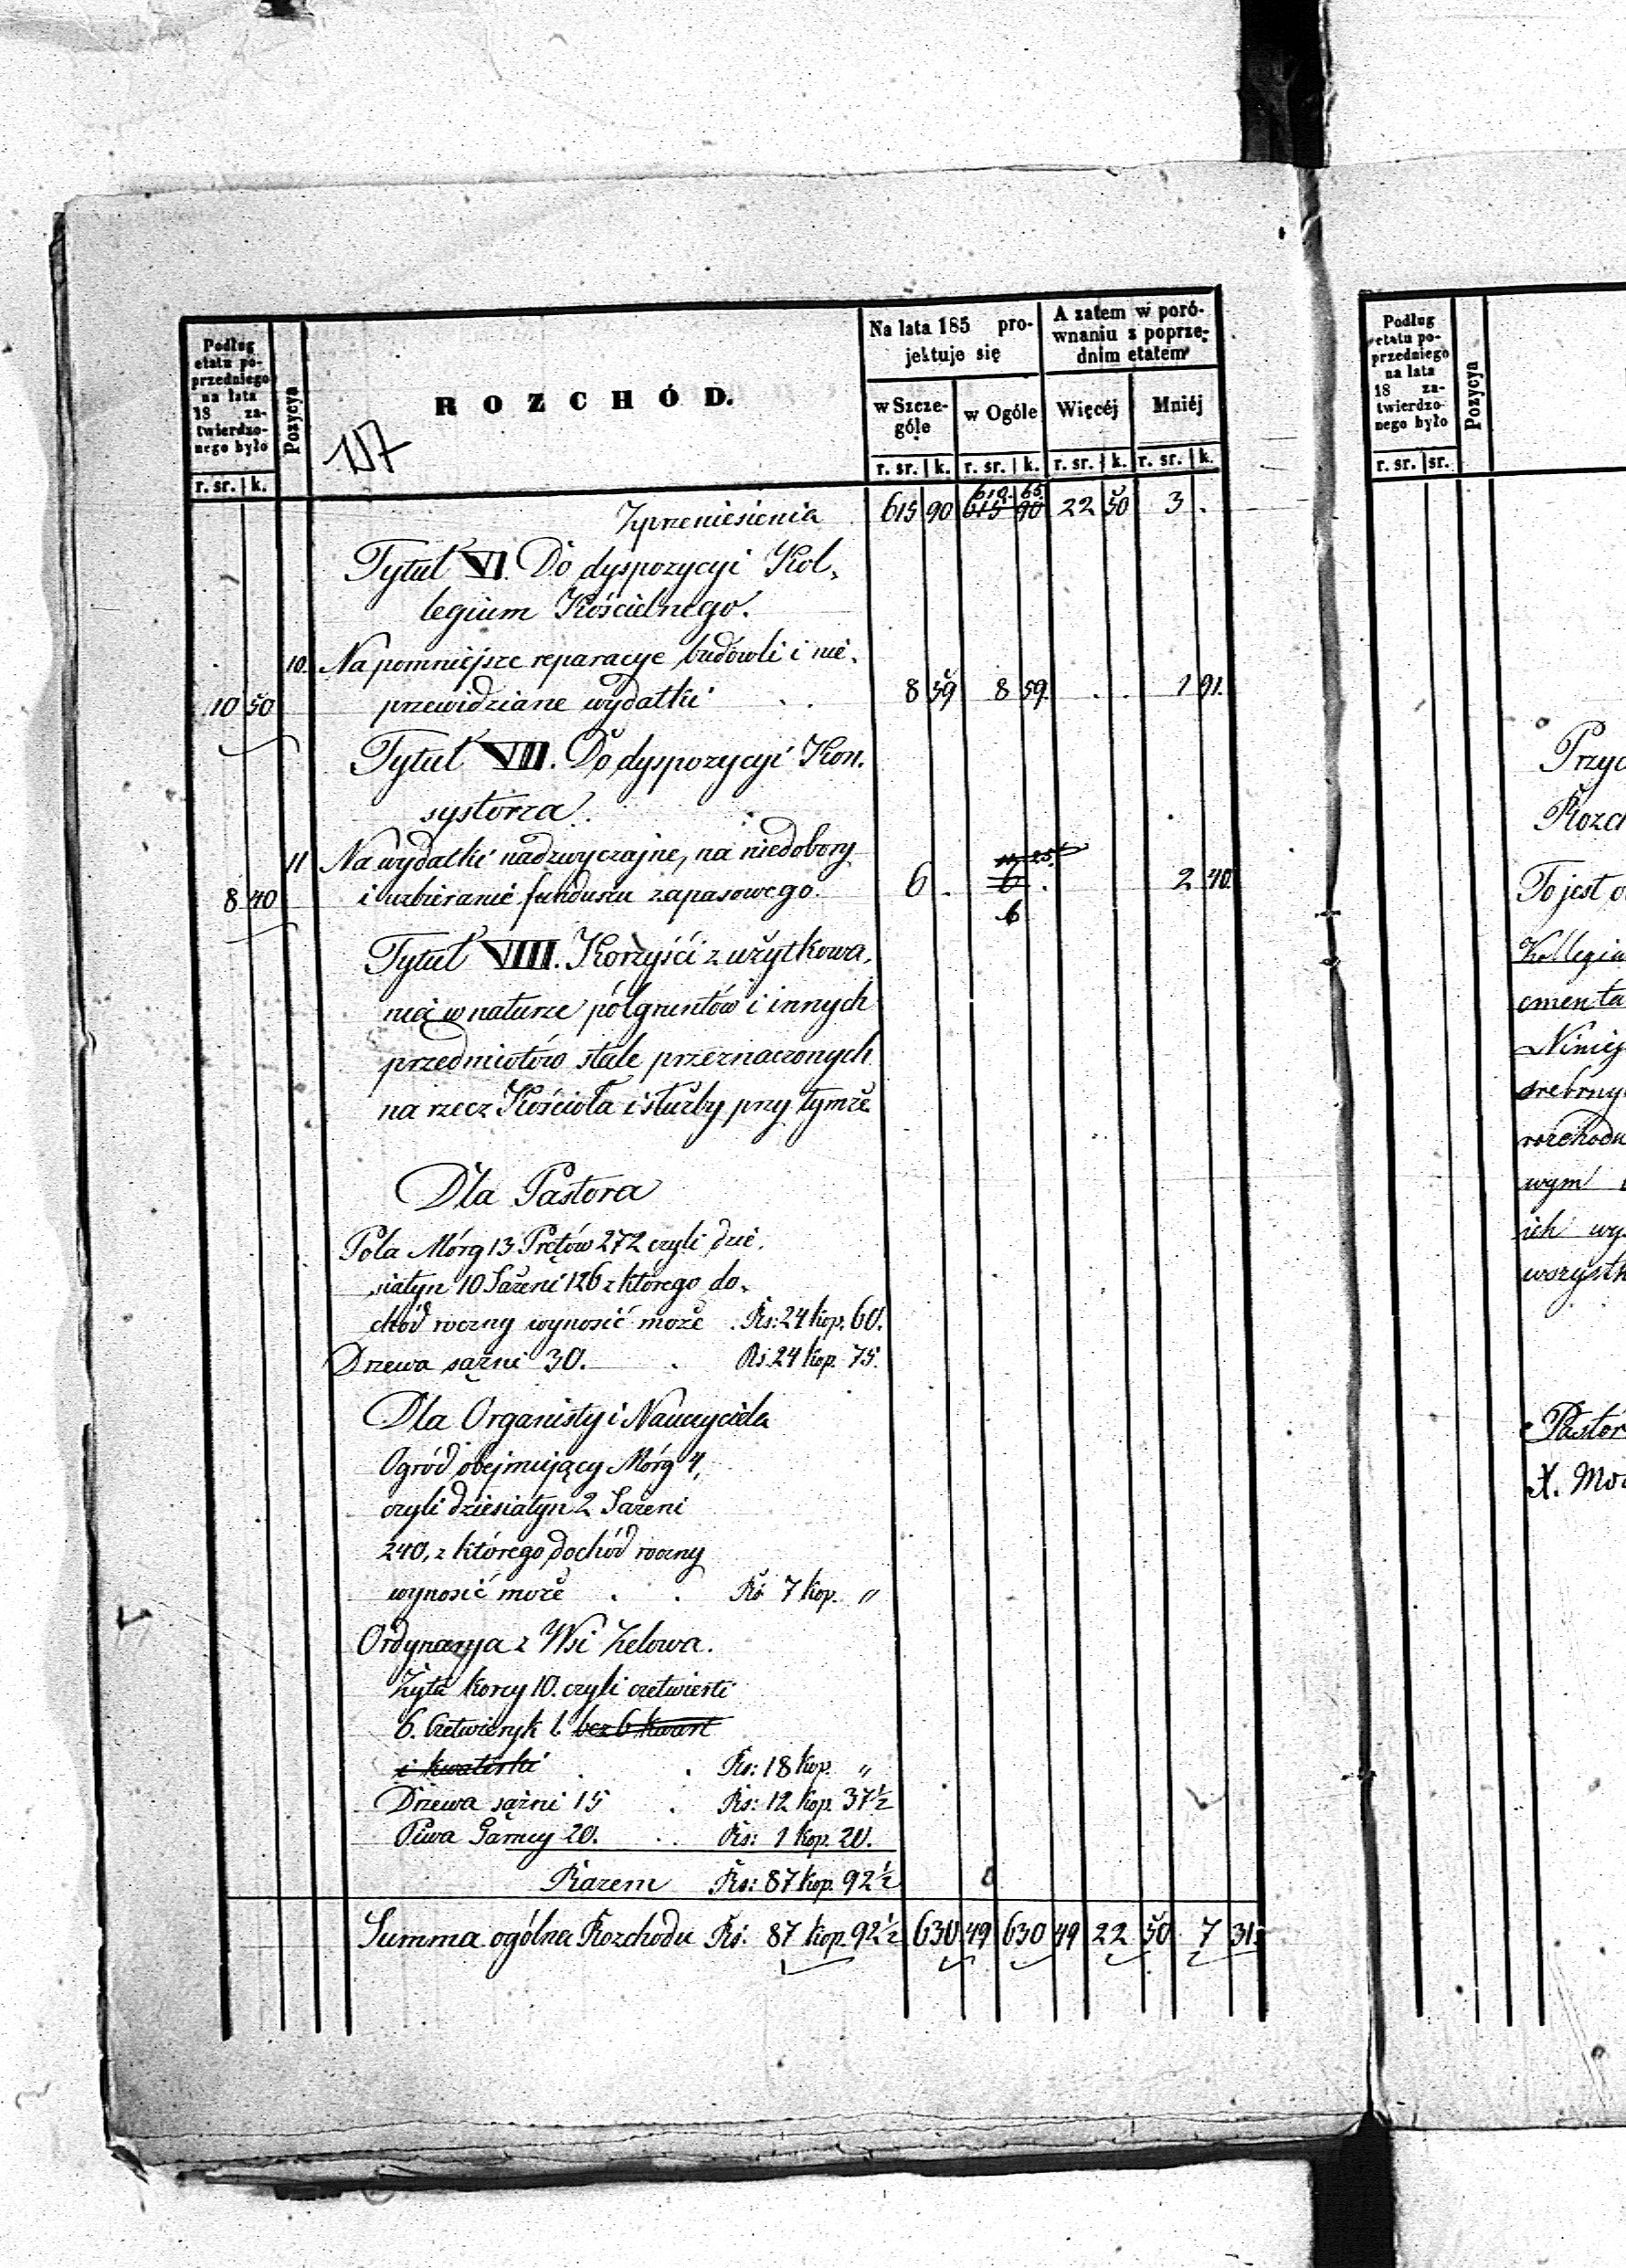 Podług
etatu po-
przedniego
na lata
18 za-
twierdzo-
nego było
r. sr. k.
Pozycya
ROZCHÓD.
117
Na lata 185 pro-
jektuje się
w Szcze-
góle
w Ogóle
A zatem w poró-
wnaniu z poprze-
dnim etatem
Więcéj
Mniéj
r. sr. k. r. sr. k. r. sr. k. r. sr. k.
610. 65.
Zprzeniesienia 615 90 615 90 22 50 3 .
Tytuł VI. Do dyspozycyi Kol-
legium Kościelnego.
10. Na pomniejsze reparacye budowli i nie-
10 50 przewidziane wydatki . . 8 59 8 59. . . 1 91.
Tytuł VII. Do dyspozycyi Kon-
systorza.
11 Na wydatki nadzwyczajne, na niedobory
8 40 i uzbieranie funduszu zapasowego. 6 . 6 . 2 40.
6
Tytuł VIII. Korzyści z użytkowa-
nia w naturze pól gruntów i innych
przedmiotów stale przeznaczonych
na rzecz Kościoła i służby przy tymże
Dla Pastora
Pola Mórg 13. Prętów 272 czyli dzie-
siatyn 10 Sażeni 126 z którego do-
chód roczny wynosić może . Rs: 24 kop. 60.
Drzewa sążni 30. . Rs. 24 kop. 75.
Dla Organisty i Nauczyciela
Ogród obejmujący Mórg 4,
czyli dziesiatyn 2 Sażeni
240, z którego dochód roczny
wynosić może . . Rs 7 kop. "
Ordynarya z Wsi Zelowa.
Żyta korcy 10. czyli czetwierti
6. Czetwieryk 1. bez 6 kwart
i kwaterki . . Rs: 18 kop. "
Drzewa sążni 15 . Rs: 12 kop. 37½
Piwa Garncy 20. . . Rs: 1 kop. 20.
Razem Rs: 87 kop. 92½
Summa ogólna Rozchodu Rs: 87 kop. 92½ 630 49 630 49 22 50 7 31.
Podług
etatu po-
przedniego
na lata
18 za-
twierdzo-
nego było
r. sr. sr.
Pozycya
To jest
Pastor